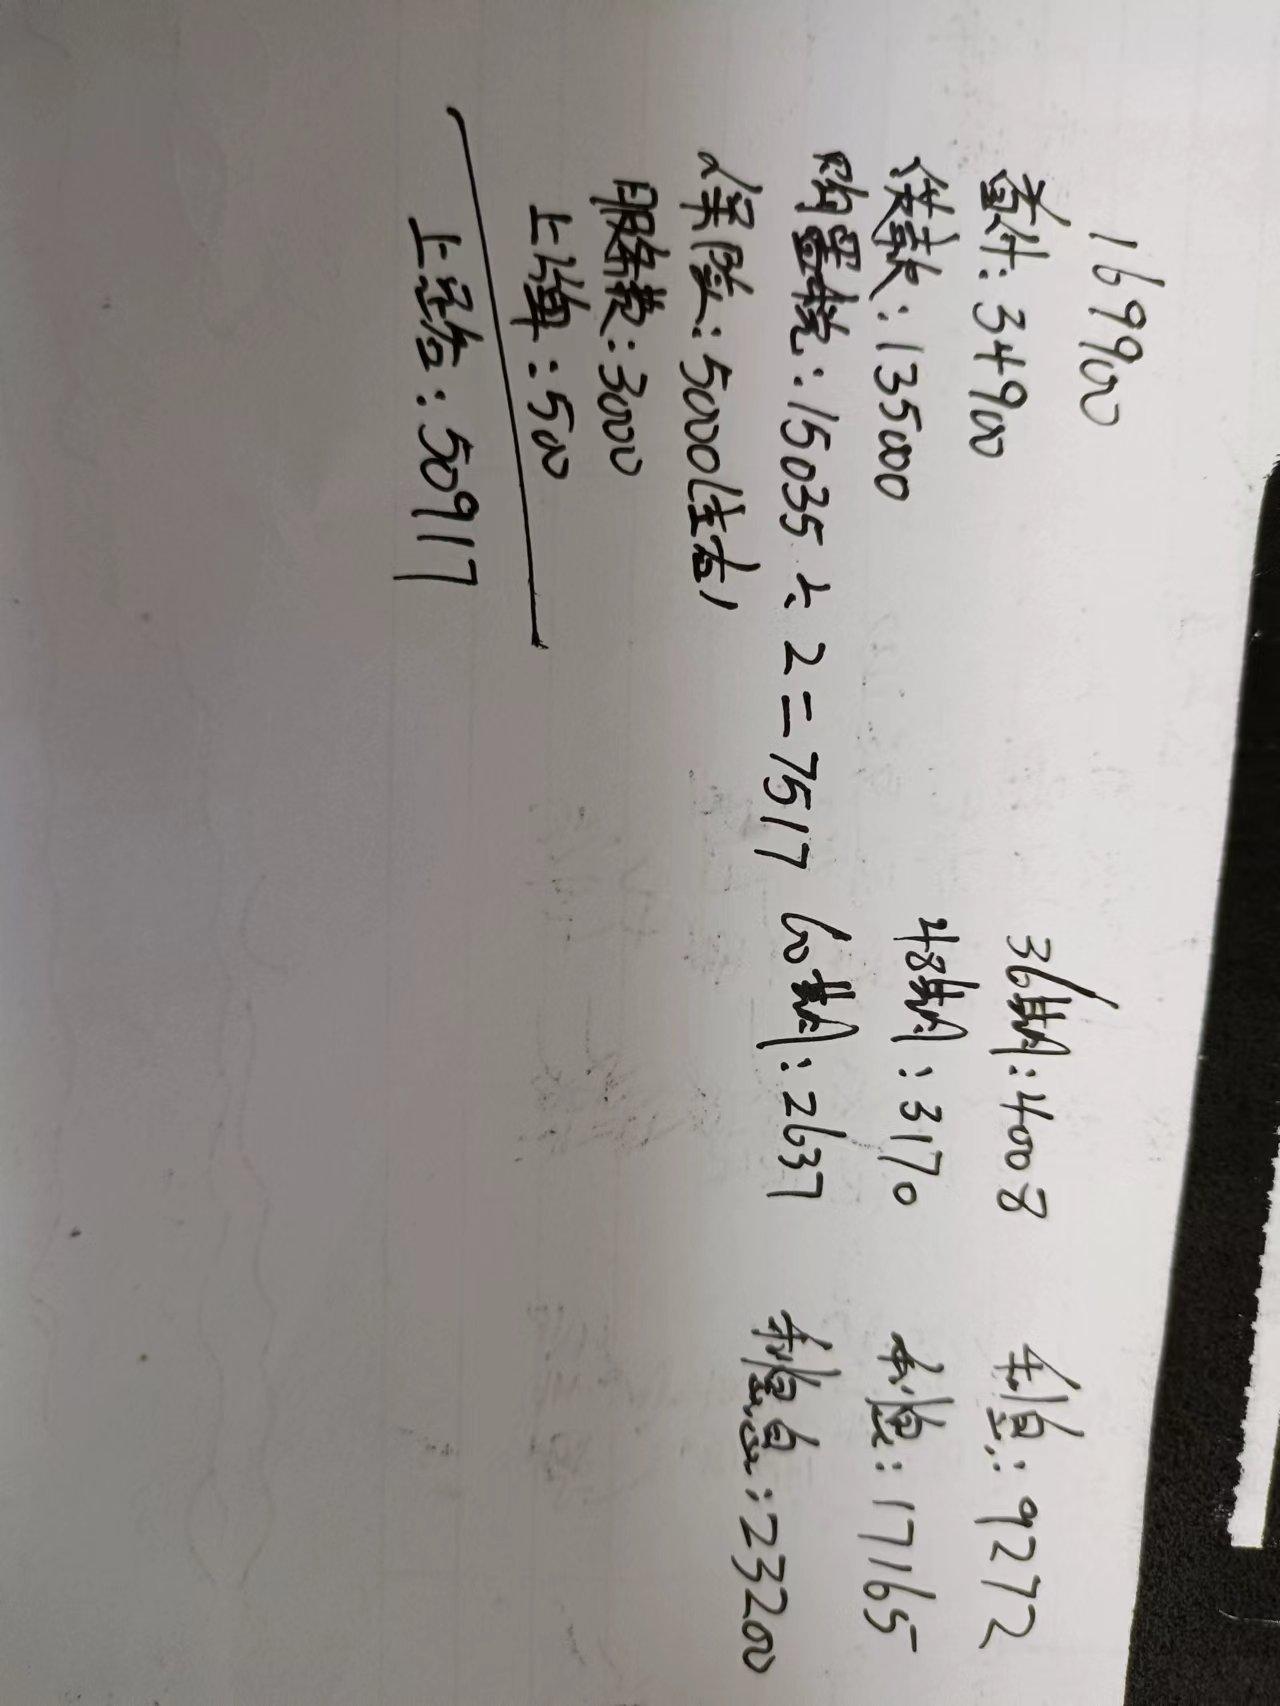 169900
首付：34900
贷款：135000
购置税：15035÷2=7517
保险：5000(左右)
服务费：3000
上牌：500
上路：50917
36期：4008 利息：9272
48期：3170 利息：17165
60期：2637 利息：23200